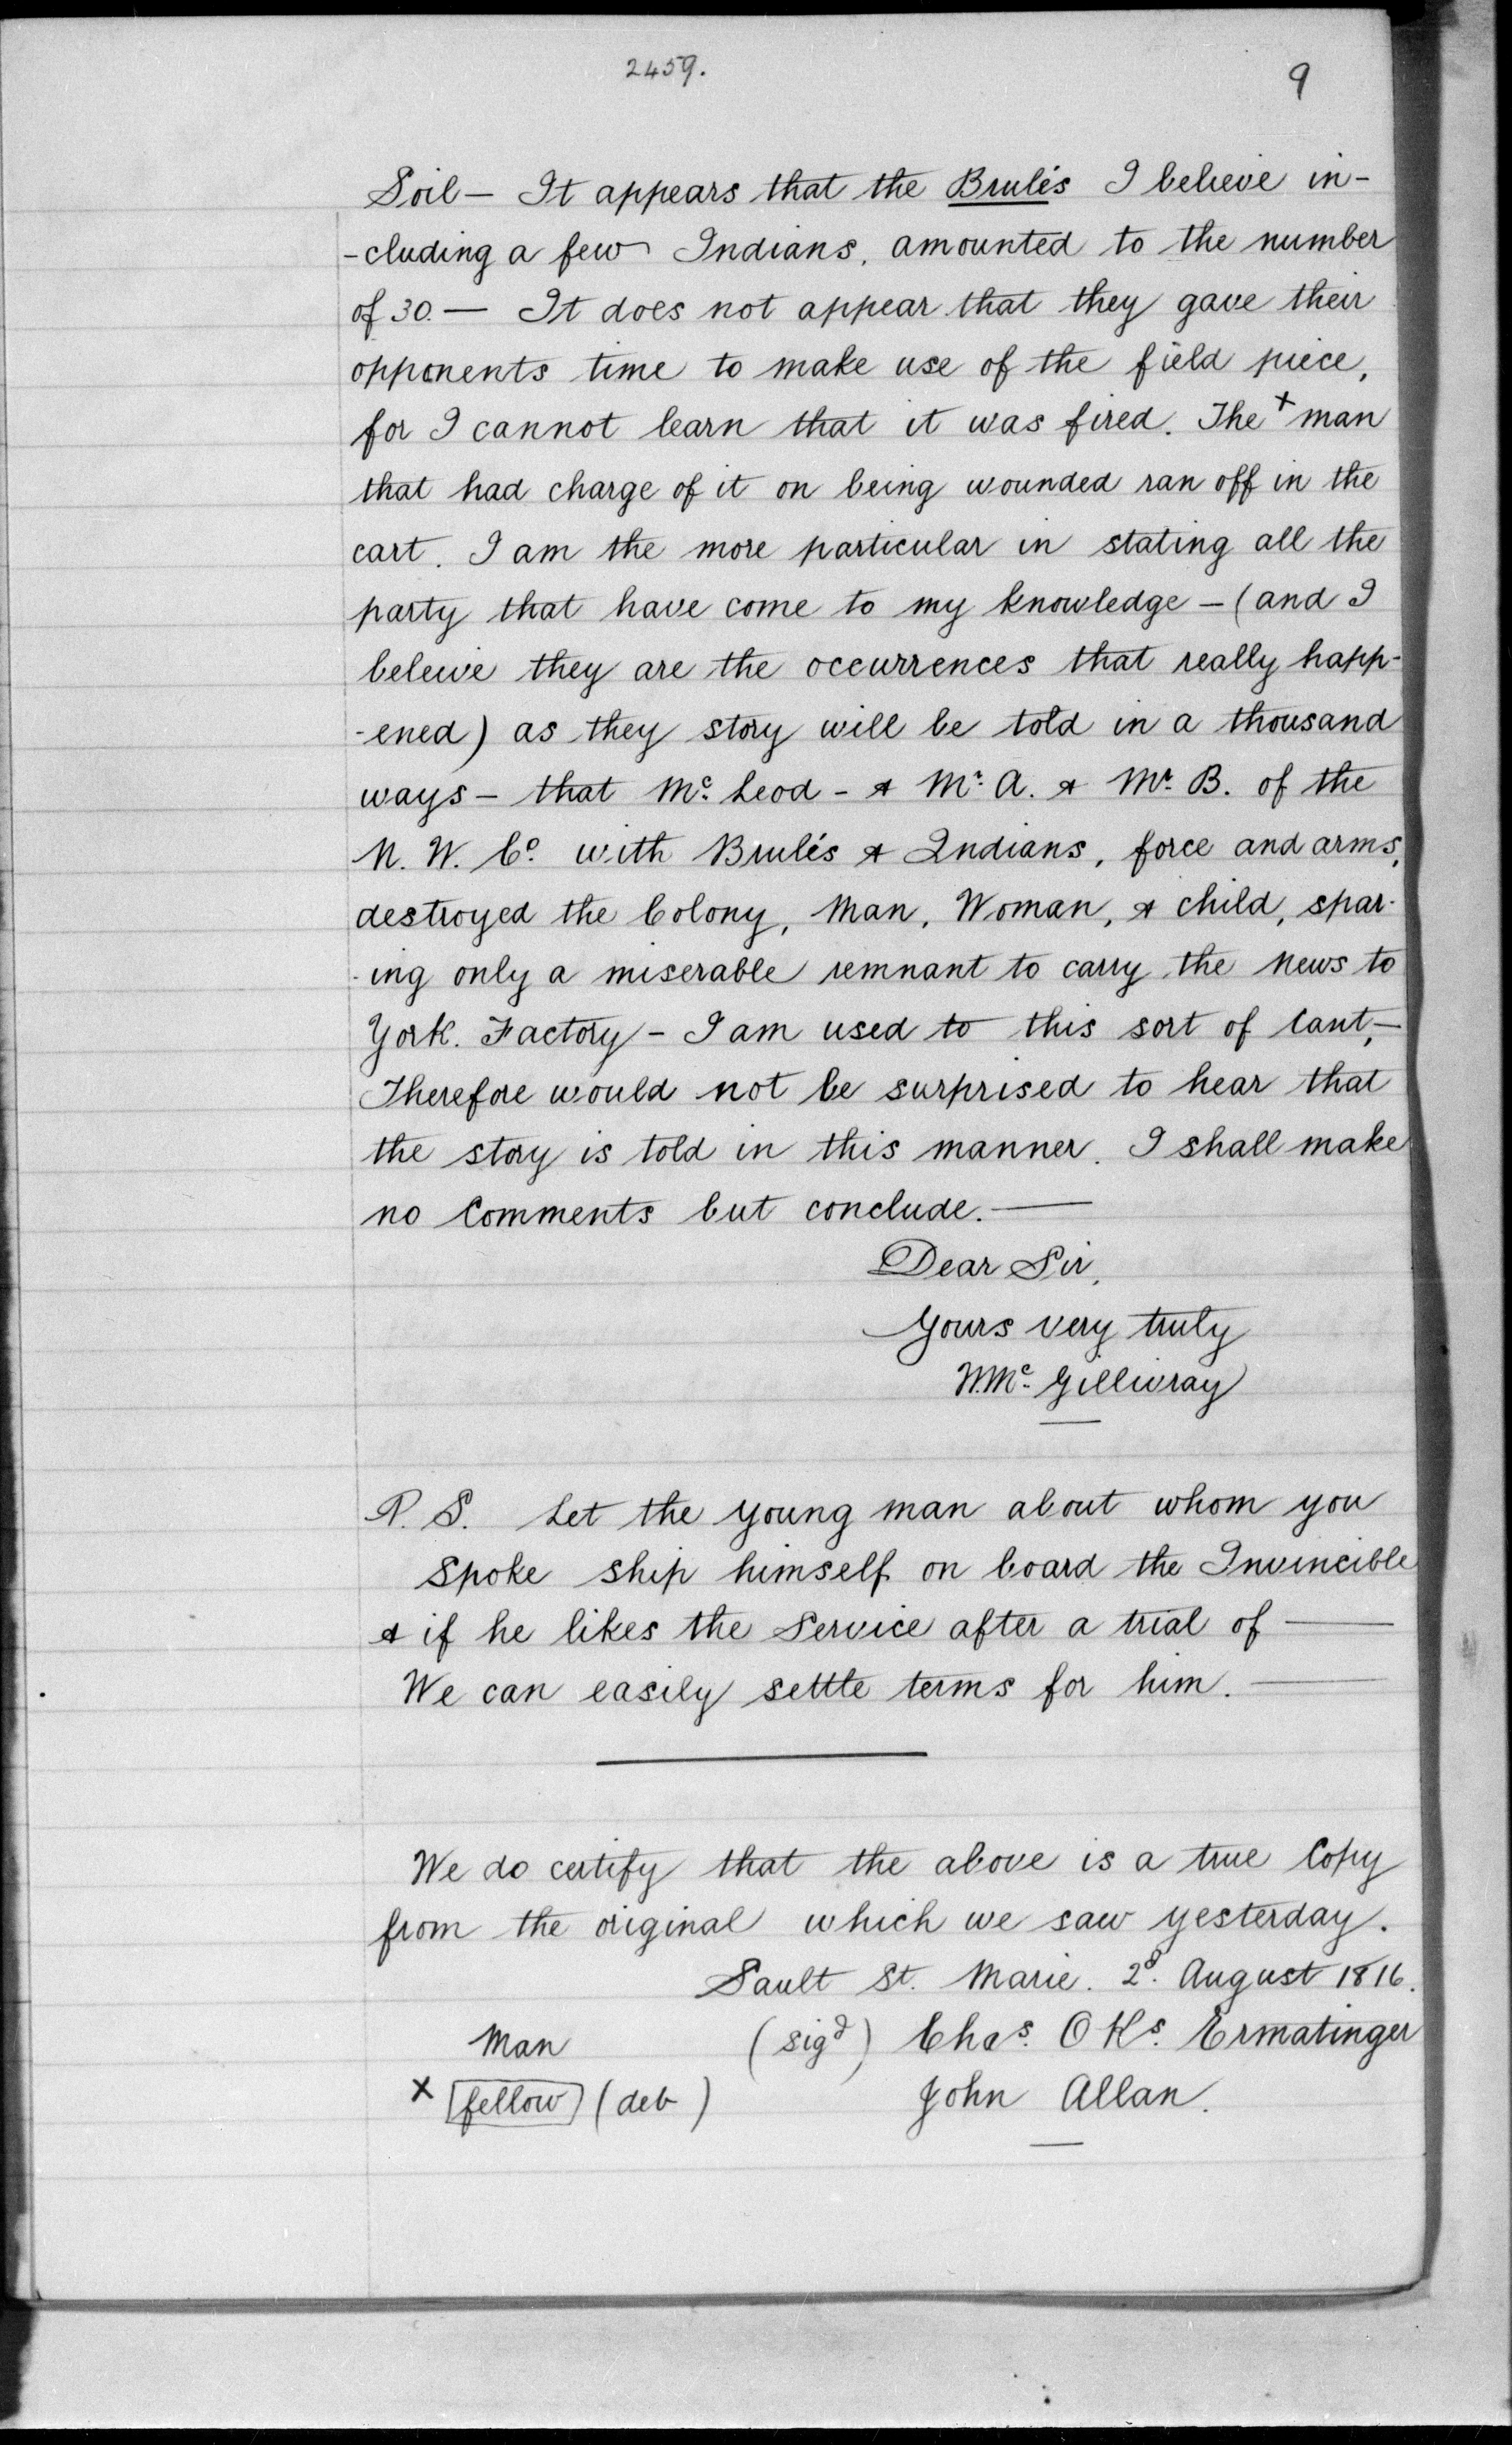 2459.
9
Soil — It appears that the Brulés I believe in-
-cluding a few Indians, amounted to the number
of 30. — It does not appear that they gave their
opponents time to make use of the field piece,
for I cannot learn that it was fired. The x man
that had charge of it on being wounded ran off in the
cart. I am the more particular in stating all the
party that have come to my knowledge — (and I
beleive they are the occurrences that really happ-
-ened) as they story will be told in a thousand
ways — that Mc. Leod - & Mr. A. & Mr. B. of the
N. W. Co. with Brulés & Indians, force and arms,
destroyed the Colony, Man, Woman, & child, spar-
-ing only a miserable remnant to carry the news to
York. Factory — I am used to this sort of Cant, —
Therefore would not be surprised to hear that
the story is told in this manner. I shall make
no Comments but conclude. —
Dear Sir,
Yours very truly
W. Mc. Gillivray
P. S. Let the young man about whom you
spoke ship himself on board the Invincible
& if he likes the Service after a trial of —
We can easily settle terms for him. —
We do certify that the above is a true Copy
from the original which we saw yesterday.
Sault St. Marie. 2d. August 1816.
Man (sigd) Chas. O Ks. Ermatinger
x [fellow] (deb) John Allan.